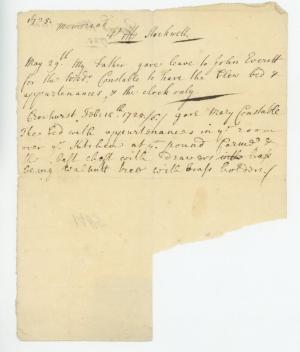 1725.
memorand
Stockwell
May 29th My Father gave leave to John Everett
for the Widdw Constable to have the Blew bed &
appurtenances, & the clock only
Crowhurst, Feb. 18th 1724/5 / I gave Mary Constable
The bed with appurtenances in ye room
over ye Kitchen at ye pound Farme &
the best chest with drawers with brass
being Walnutt tree with brass